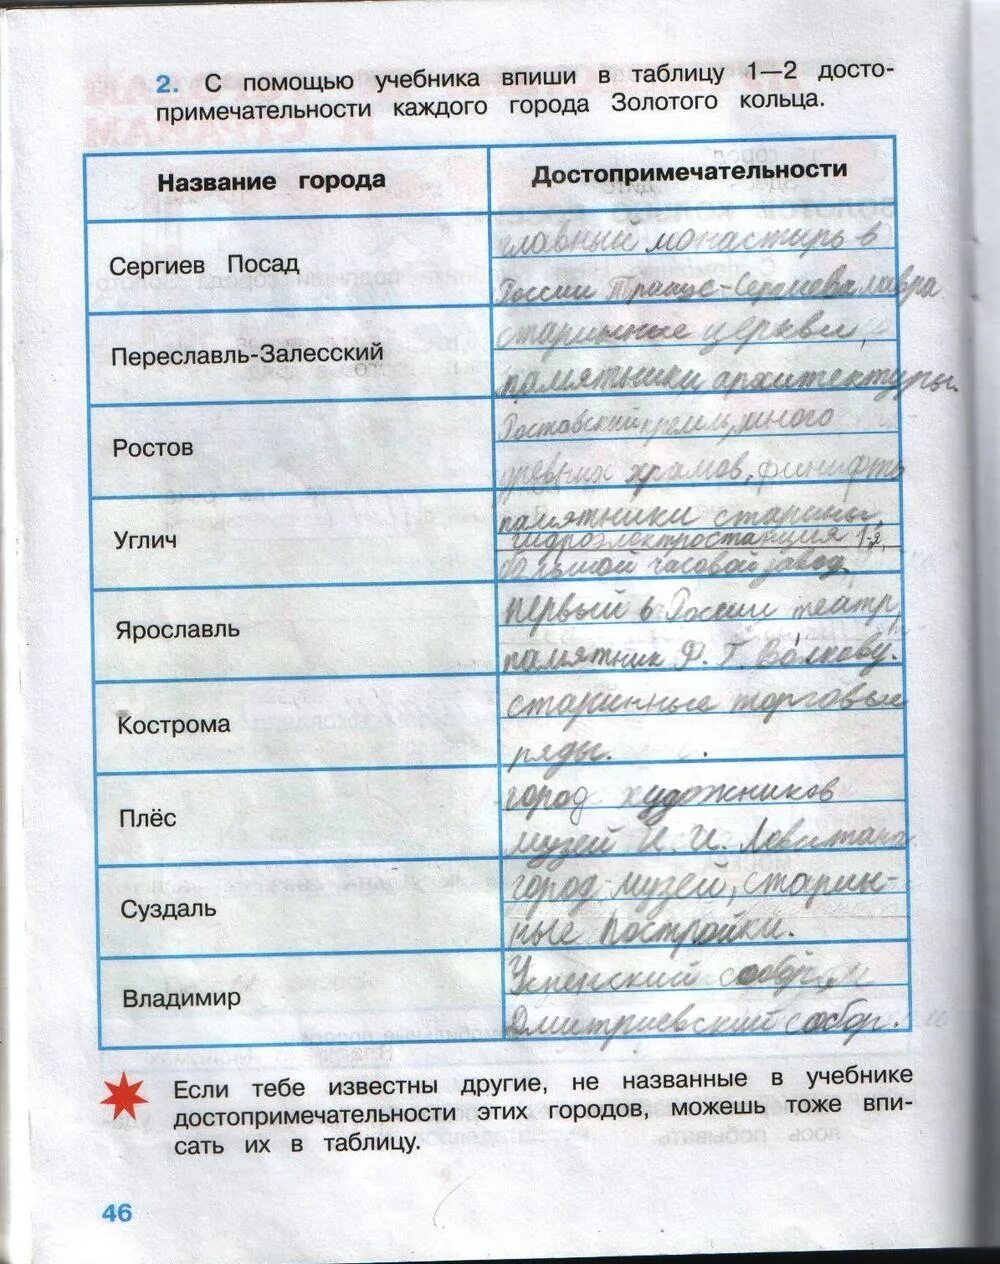 2. С помощью учебника впиши в таблицу 1—2 досто-
примечательности каждого города Золотого кольца.
Название города
Достопримечательности
Сергиев Посад
главный монастырь в
России Троице-Сергиева лавра
Переславль-Залесский
старинные церкви,
памятники архитектуры.
Ростов
Ростовский кремль, много
древних храмов, финифть
Углич
памятники старины,
гидроэлектростанция 1-я,
большой часовой завод
Ярославль
первый в России театр,
памятник Ф. Г. Волкову.
Кострома
старинные торговые
ряды.
Плёс
город художников
музей И. И. Левитана
Суздаль
город-музей, старин-
ные постройки.
Владимир
Успенский собор и
Дмитриевский собор.
Если тебе известны другие, не названные в учебнике
достопримечательности этих городов, можешь тоже впи-
сать их в таблицу.
46